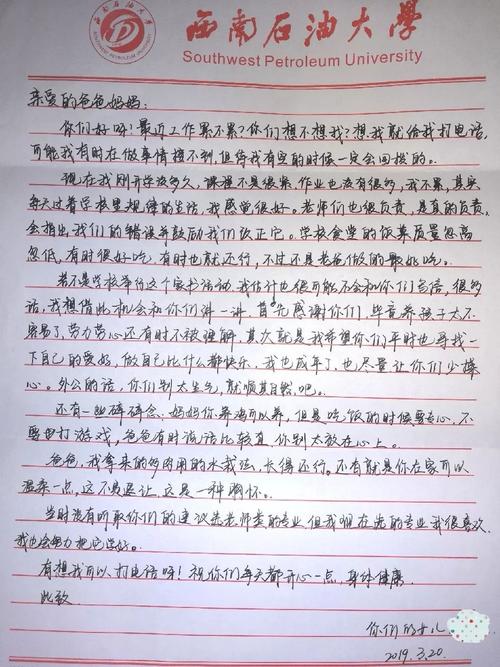 西南石油大學
Southwest Petroleum University
亲爱的爸爸妈妈：
你们好呀！最近工作累不累？你们想不想我？想我就给我打电话,
可能我有时在做事情接不到,但等我有空的时候一定会回拨的。
现在我刚开学没多久,课程不是很紧,作业也没有很多,我不累,其实
每天过着学校里规律的生活,我感觉很好。老师们也很负责,是真的负责,
会指出我们的错误并鼓励我们改正它。学校食堂的饭菜质量忽高
忽低,有时很好吃,有时也就还行,不过还是老爸做的最好吃。
若不是学校举行这个家书活动,我估计也很可能不会和你们写信,很多
话,我想借此机会和你们讲一讲。首先感谢你们,毕竟养孩子太不
容易了,劳力劳心还有时不被理解,其次就是我希望你们平时也寻找一
下自己的爱好,做自己比什么都快乐,我也成年了,也尽量让你们少操
心。外公的话,你们别太生气,就顺其自然吧。
还有一些碎碎念,妈妈你养鸡可以养,但是吃饭的时候要专心,不
要也打游戏,爸爸有时说话比较直,你别太放在心上。
爸爸,我拿来的多肉用的水栽法,长得还行。还有就是你在家可以
温柔一点,这不是退让,这是一种胸怀。
当时没有听取你们的建议选老师类的专业,但我现在选的专业我很喜欢,
我也会努力把它学好。
有想我可以打电话呀！祝你们每天都开心一点,身体健康
此致
你们的女儿
2019.3.20